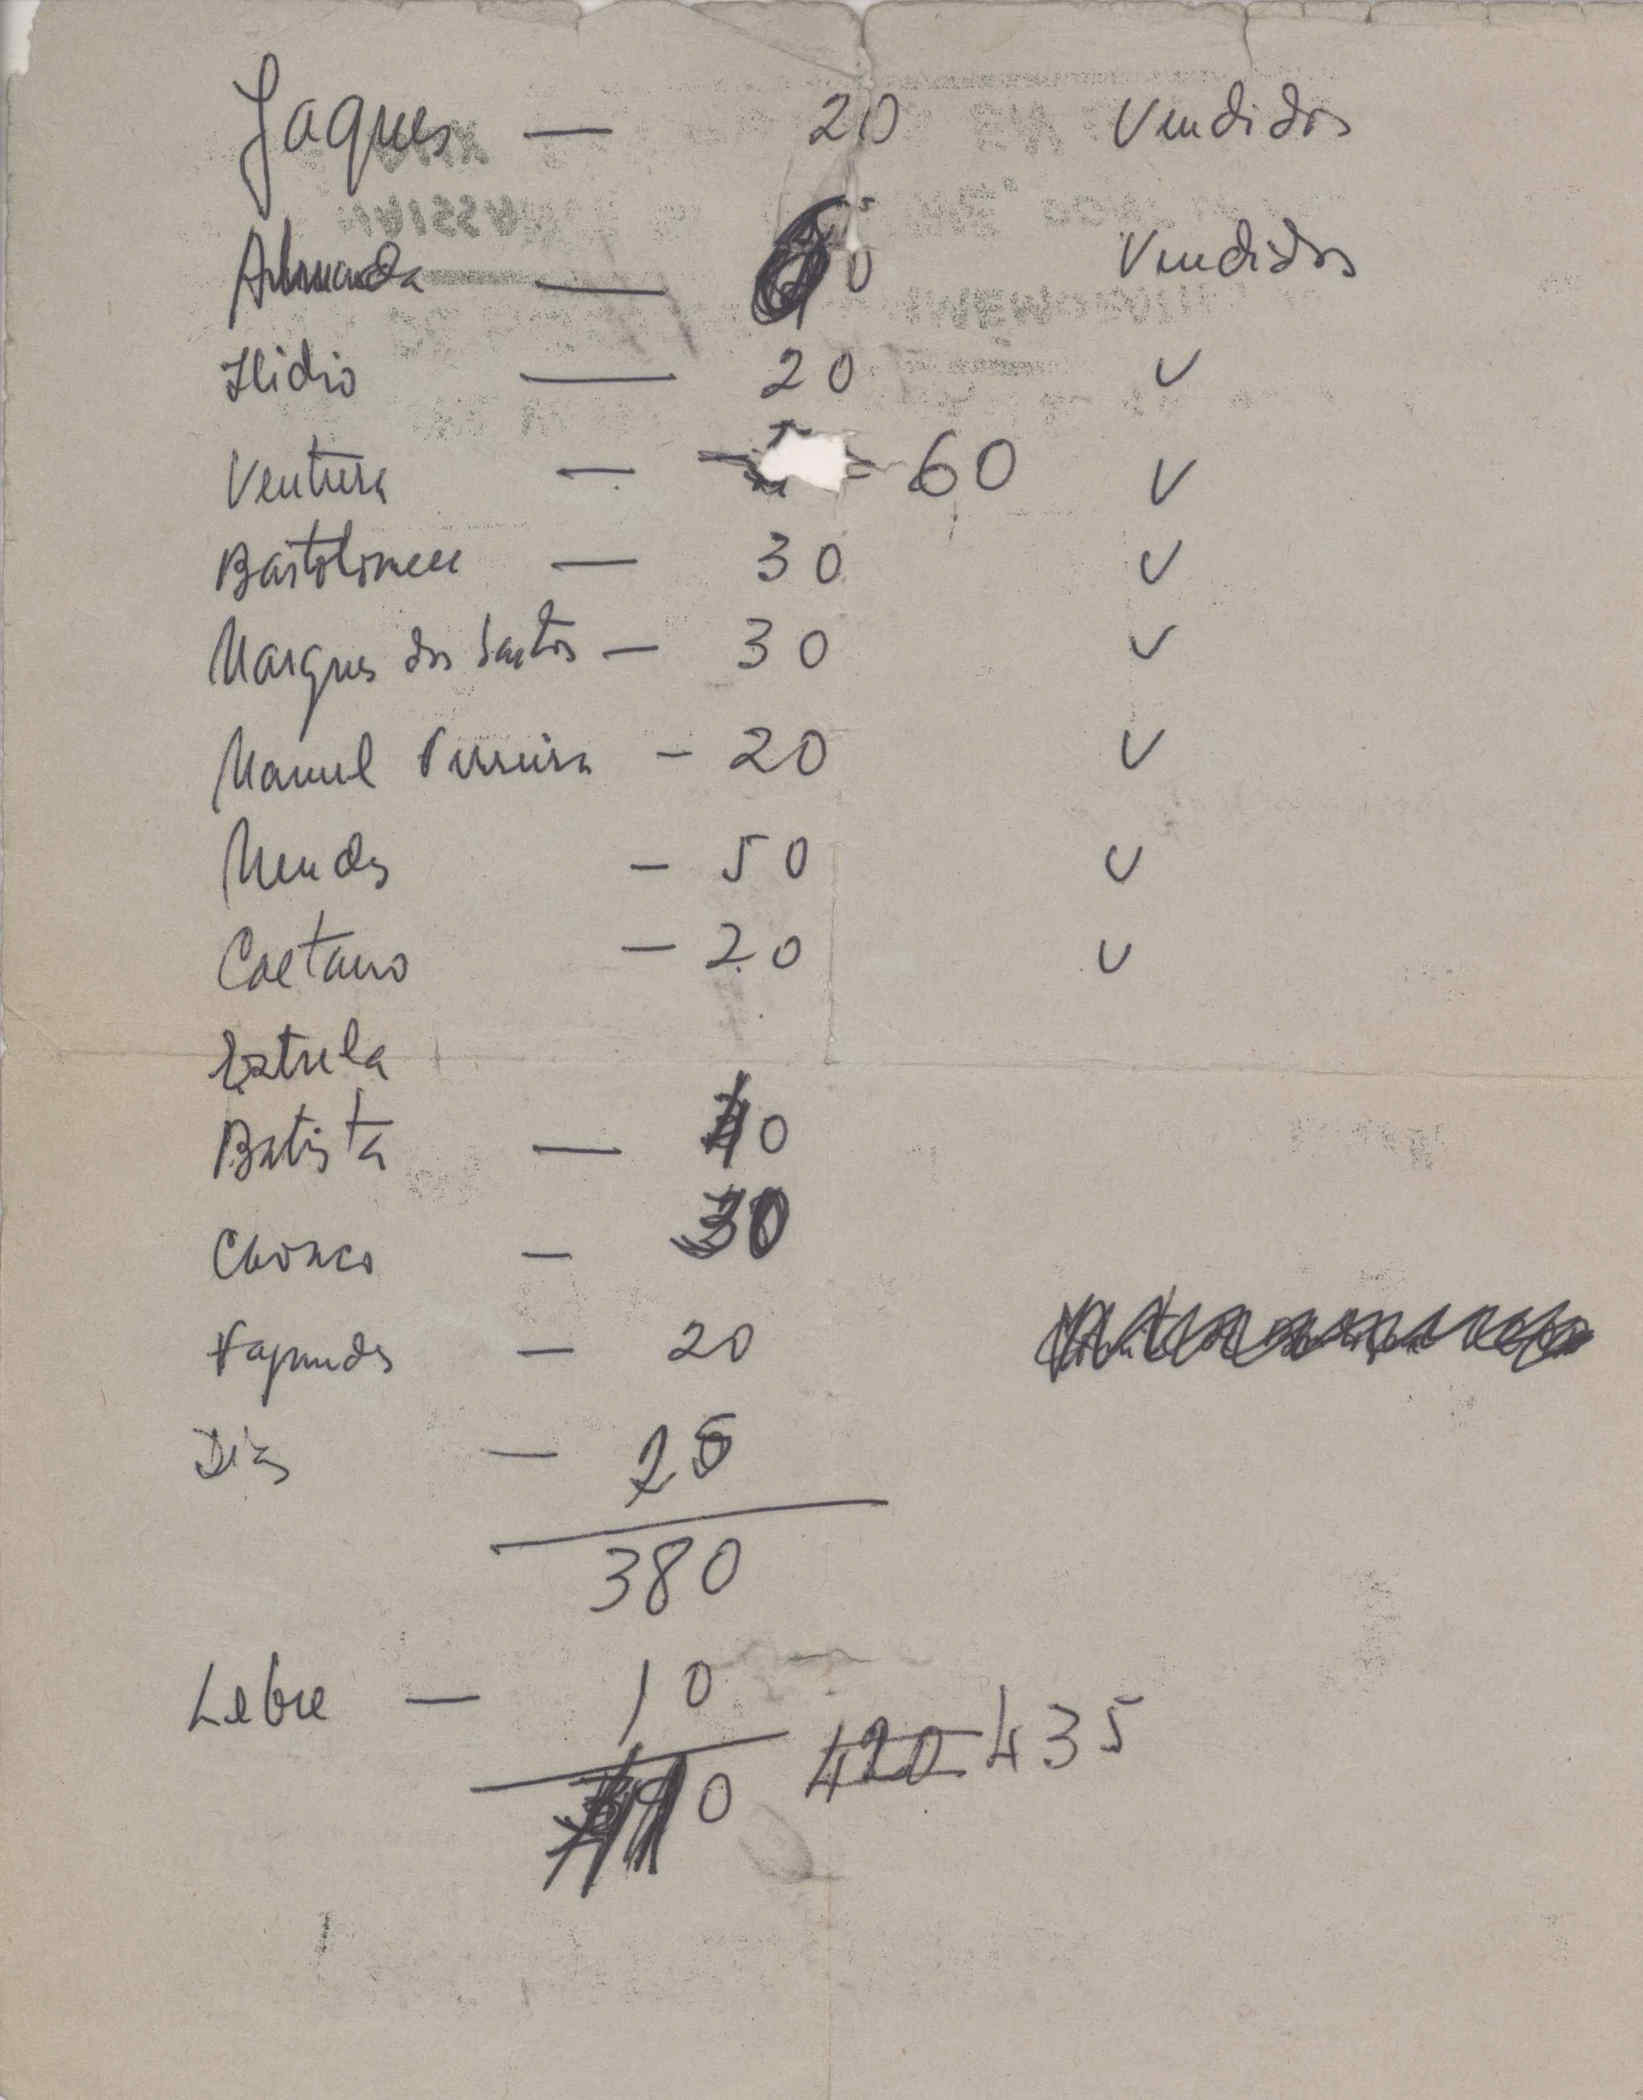 Jaques — 20 Vendidos
Almada — Vendidos
Ilidio — 20 V
Ventura — 60 V
Bartolomeu — 30 V
Marques dos Santos — 30 V
Manuel Ferreira — 20 V
Mendes — 50 V
Caetano — 20 V
Estrela
Batista — 40
— 30
Fagundes — 20
Dias — 25
380
Lebre — 10
420 435